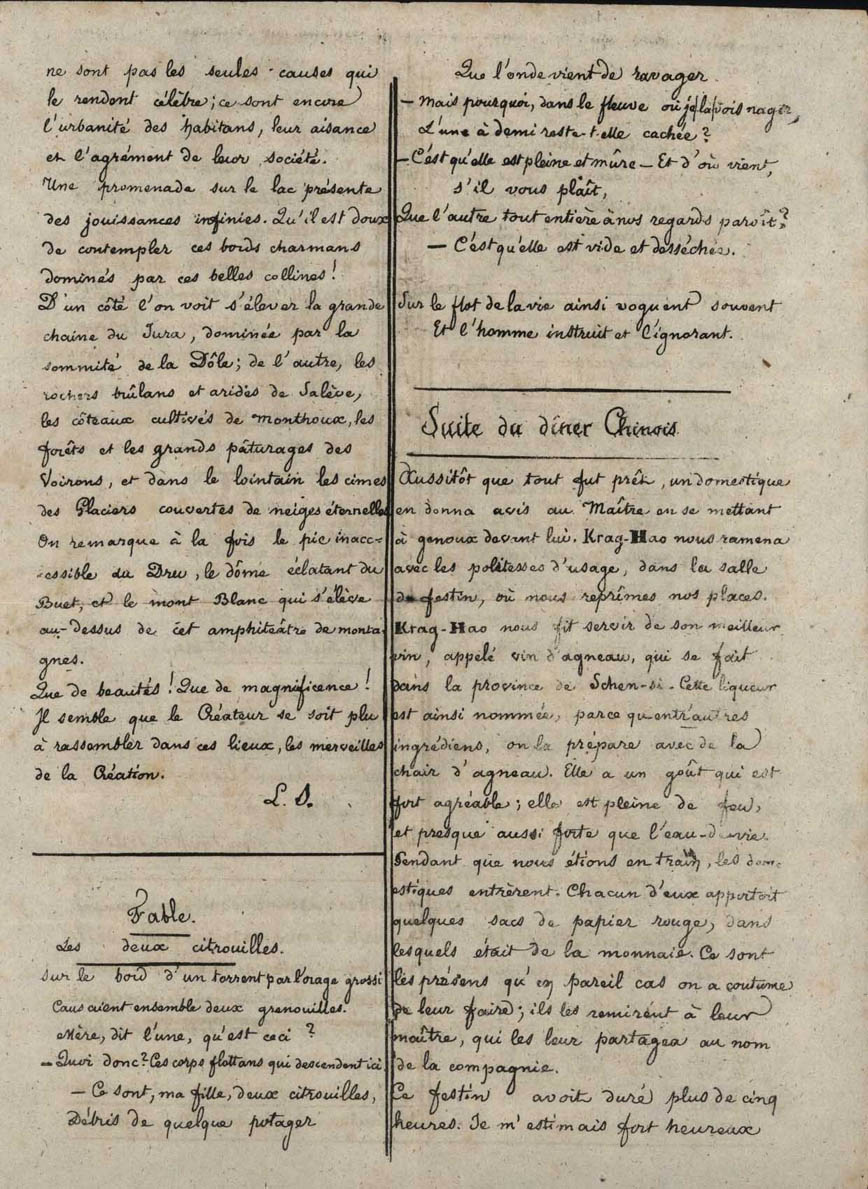 ne sont pas les seules causes qui
le rendent célèbre; ce sont encore
l'urbanité des habitans, leur aisance
et l'agrément de leur société.
Une promenade sur le lac présente
des jouissances infinies. Qu'il est doux
de contempler ces bords charmans
dominés par ces belles collines!
D'un côté l'on voit s'élever la grande
chaine du Jura, dominée par la
sommité de la Dôle; de l'autre, les
rochers brûlans et arides de Salève,
les côteaux cultivés de Monthoux, les
forêts et les grands pâturages des
Voirons, et dans le lointain les cimes
des Glaciers couvertes de neiges éternelles
On remarque à la fois le pic inacc-
essible du Dru, le dôme éclatant du
Buet, et le mont Blanc qui s'élève
au-dessus de cet amphiteâtre de monta-
gnes.
Que de beautés! Que de magnificence!
Il semble que le Créateur se soit plu
à rassembler dans ces lieux, les merveilles
de la Création.
L. S.
Fable.
Les deux citrouilles.
Sur le bord d'un torrent par l'orage grossi
Causaient ensemble deux grenouilles.
Mère, dit l'une, qu'est ceci?
— Quoi donc? Ces corps flottans qui descendent ici
— Ce sont, ma fille, deux citrouilles,
Débris de quelque potager
Que l'onde vient de ravager.
— Mais pourquoi, dans le fleuve où je la vois nager,
L'une à demi reste-t-elle cachée?
— C'est qu'elle est pleine et mûre — Et d'où vient,
s'il vous plaît,
Que l'autre tout entière à nos regards paroît?
— C'est qu'elle est vide et desséchée.
Sur le flot de la vie ainsi voguent souvent
Et l'homme instruit et l'ignorant.
Suite du dîner Chinois.
Aussitôt que tout fut prêt, un domestique
en donna avis au Maître en se mettant
à genoux devant lui. Krag-Hao nous ramena
avec les politesses d'usage, dans la salle
de festin, où nous reprîmes nos places.
Krag-Hao nous fit servir de son meilleur
vin, appelé vin d'agneau, qui se fait
dans la province de Schen-si. Cette liqueur
est ainsi nommée, parce qu'entr'autres
ingrédiens, on la prépare avec de la
chair d'agneau. Elle a un goût qui est
fort agréable; elle est pleine de feu,
et presque aussi forte que l'eau-de-vie.
Pendant que nous étions en train, les dom-
estiques entrèrent. Chacun d'eux apportoit
quelques sacs de papier rouge, dans
lesquels était de la monnaie. Ce sont
les présens qu'en pareil cas on a coutume
de leur faire; ils les remirent à leur
maître, qui les leur partagea au nom
de la compagnie.
Ce festin avoit duré plus de cinq
heures. Je m'estimais fort heureux